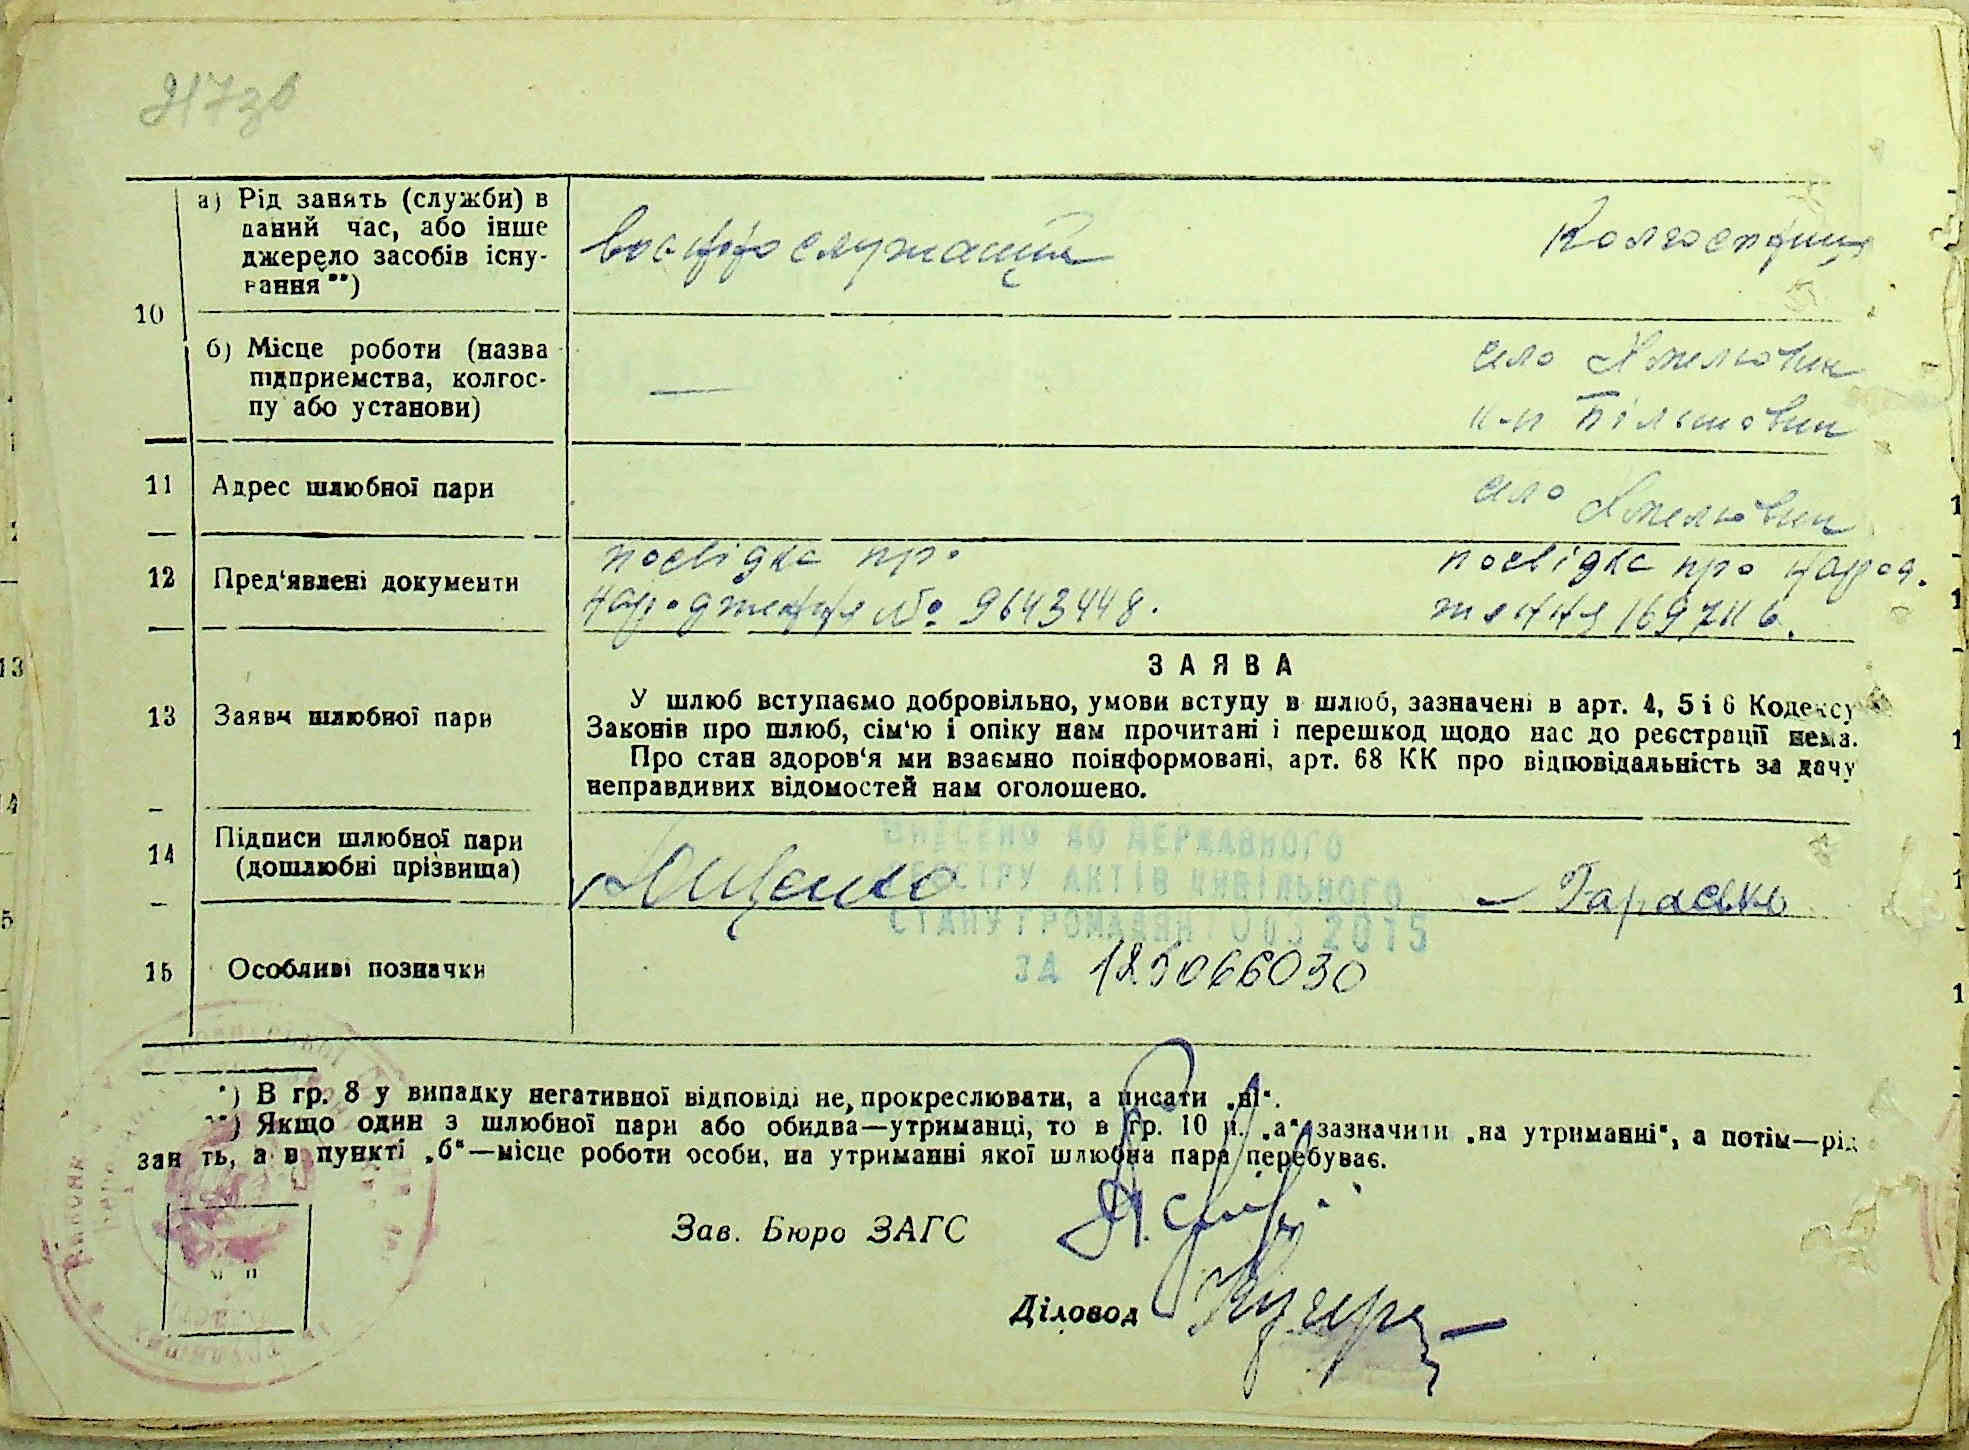 10
а) Рід занять (служби) в
даний час, або інше
джерело засобів існу-
вання**)
военнослужащий
Колгоспниця
б) Місце роботи (назва
підприємства, колгос-
пу або установи)
—
село
к-п Більшовик
11 Адрес шлюбної пари
село
12 Пред‘явлені документи
посвідка про
народження № 9643448.
посвідка про народ.
ження 169716.
13 Заява шлюбної пари
ЗАЯВА
У шлюб вступаємо добровільно, умови вступу в шлюб, зазначені в арт. 4, 5 і 6 Кодексу
Законів про шлюб, сім‘ю і опіку нам прочитані і перешкод щодо нас до реєстрації нема.
Про стан здоров‘я ми взаємно поінформовані, арт. 68 КК про відповідальність за дачу
неправдивих відомостей нам оголошено.
14 Підписи шлюбної пари
(дошлюбні прізвища)
Ющенко
Гарасько
ВНЕСЕНО ДО ДЕРЖАВНОГО
РЕЄСТРУ АКТІВ ЦИВІЛЬНОГО
СТАНУ ГРОМАДЯН 2015
ЗА 125066030
15 Особливі позначки
*) В гр. 8 у випадку негативної відповіді не прокреслювати, а писати „ні“.
**) Якщо один з шлюбної пари або обидва—утриманці, то в гр. 10 п. „а“ зазначити „на утриманні“, а потім—рід
занять, а в пункті „б“—місце роботи особи, на утриманні якої шлюбна пара перебуває.
м п
Зав. Бюро ЗАГС
Діловод